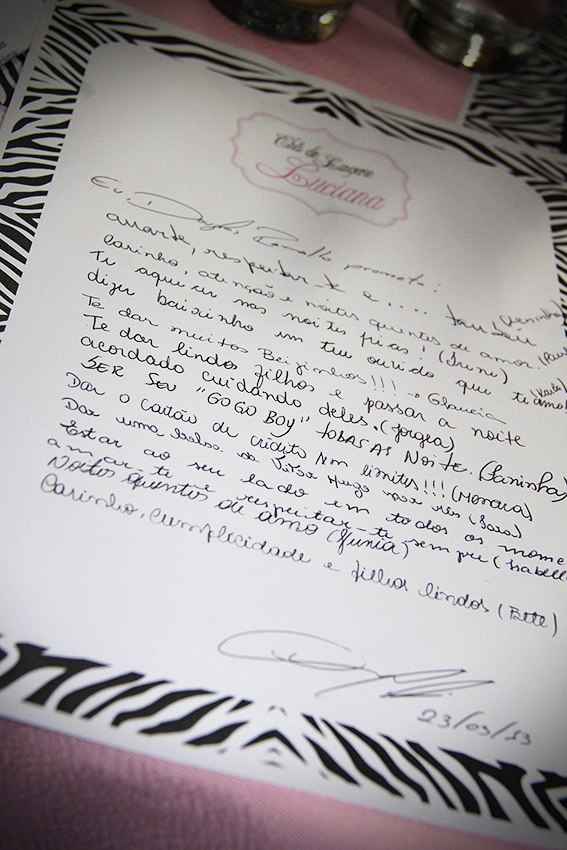 Chá de Lingerie
Luciana
Eu, Douglas Ramalho prometo:
amarte, respeitar-te e .... também
carinho, atenção e noites quentes de amor.
Te aquecer nas noites frias! (Irene)
dizer baixinho em teu ouvido que te amo
Te dar muitos Beijinhos!!! Glaucia
Te dar lindos filhos e passar a noite
acordado cuidando deles. (Jorgea)
SER SEU "GOGO BOY" TODAS AS NOITE. (Janinha)
Dar o cartão de crédito sem limites!!! (Morena)
Dar uma bolsa da Victor Hugo por mês (Sara)
Estar ao seu lado em todos os mome
amar-te e respeitar-te sempre (Isabell
Noites quentes de amo (Junia)
Carinho, cumplicidade e filhos lindos (Ette)
23/03/13